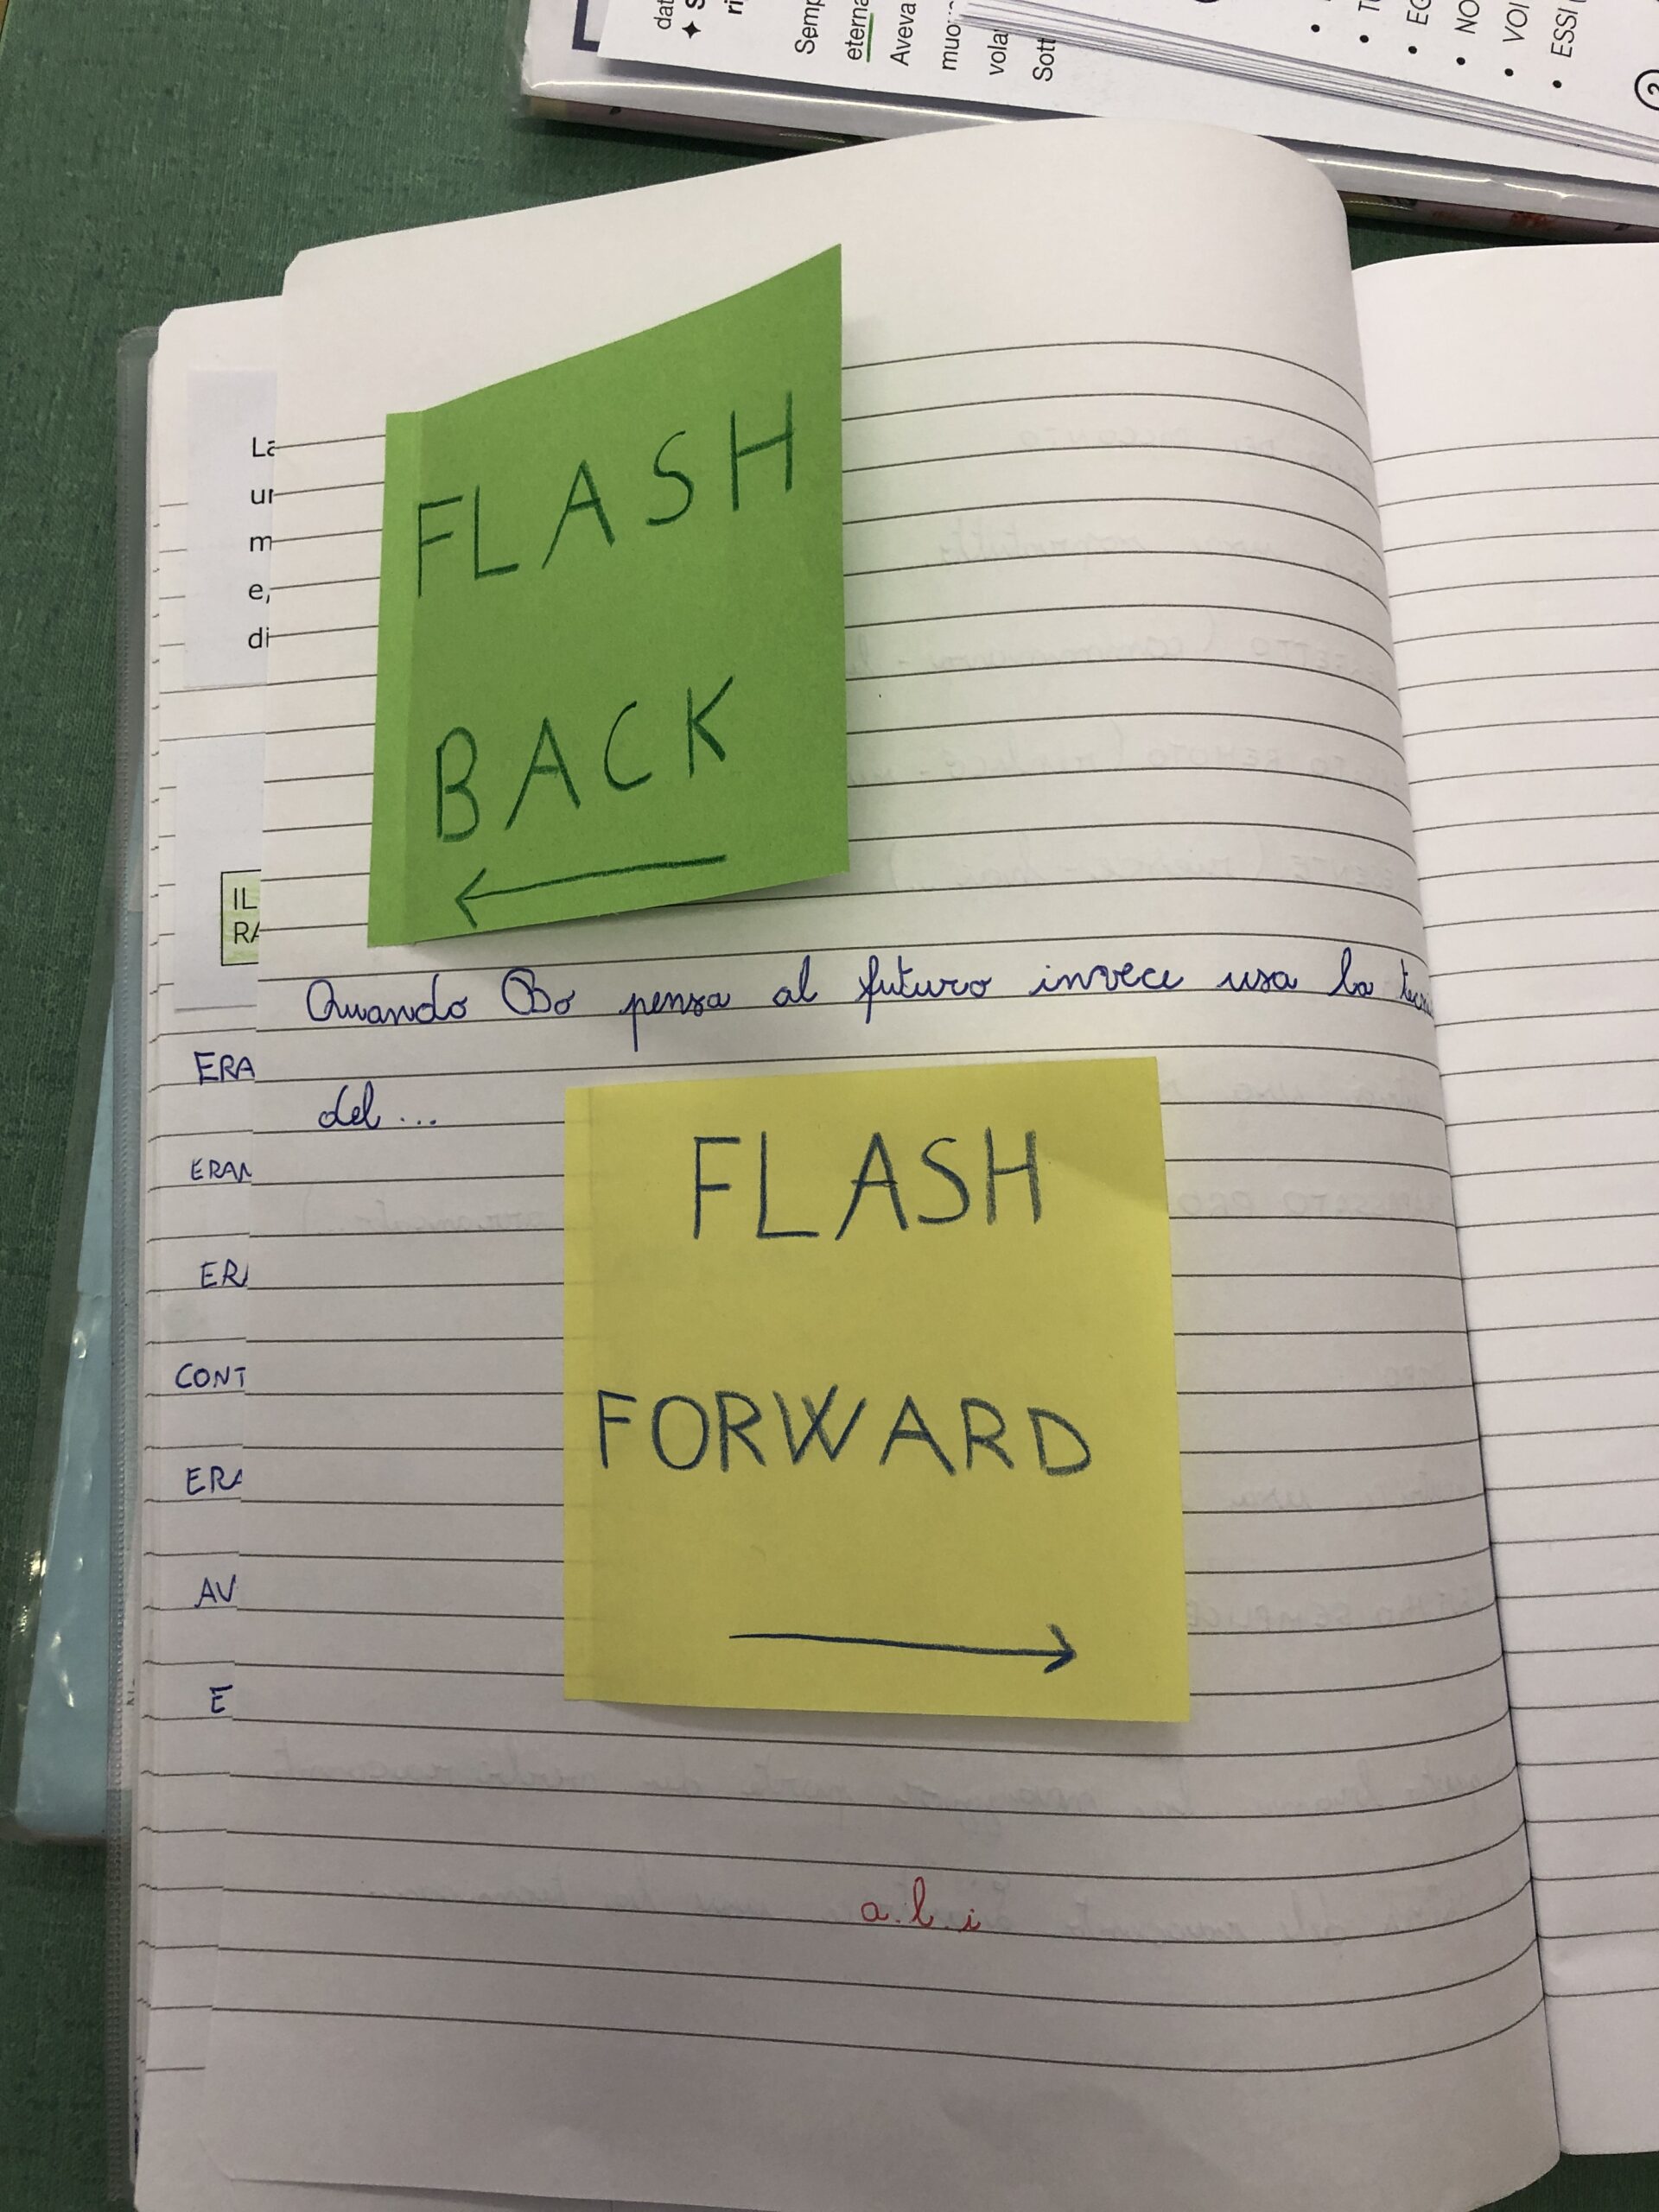 dat
✦ S
ri
Semp
eterna
Aveva
muo
vola
Sott
• T
• EG
• NO
• VOI
• ESSI
2
La
un
m
e,
di
FLASH
BACK
←
IL
RA
Quando Bo pensa al futuro invece usa la
del...
ERA
ERAN
ER
CONT
ERA
AV
E
FLASH
FORWARD
→
a.l.i